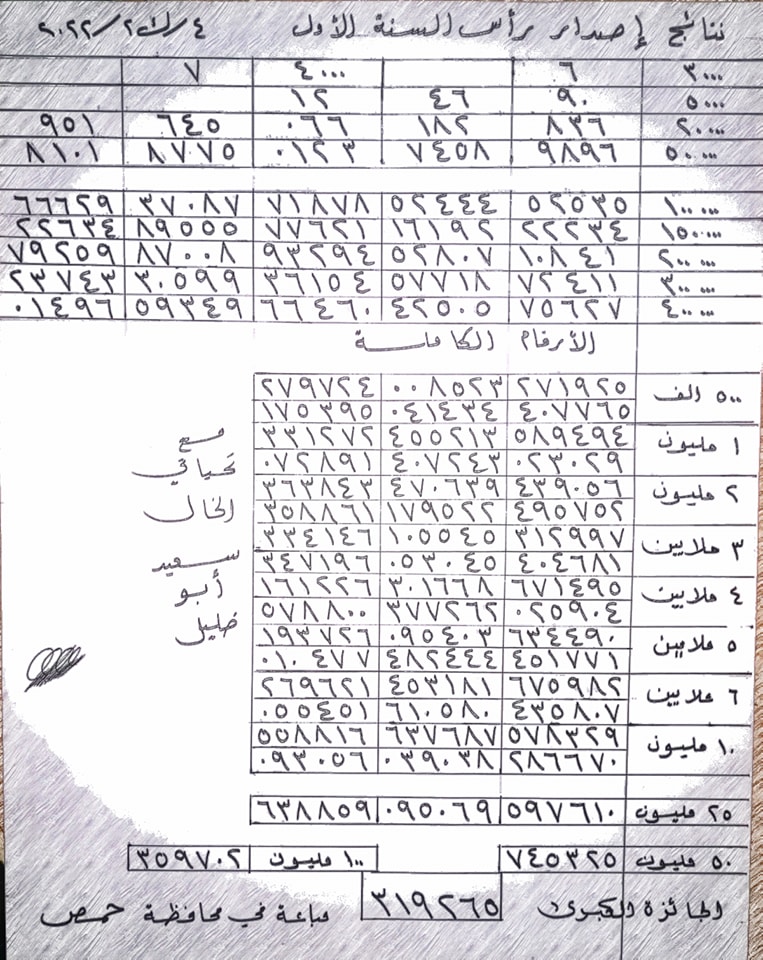 نتائج إصدار رأس السنة الأول ٤/ك٢/٢٠٢٢
٣٠٠٠ ٦ ٤٠٠٠ ٧
٥٠٠٠ ٩٠ ٤٦ ١٢
٢٠٠٠٠ ٨٣٦ ١٨٢ ٠٦٦ ٦٤٥ ٩٥١
٥٠٠٠٠ ٩٨٩٦ ٧٤٥٨ ٠١٢٣ ٨٧٧٥ ٨١٠١
١٠٠٠٠٠ ٥٢٥٣٥ ٥٢٤٤٤ ٧١٨٧٨ ٣٧٠٨٧ ٦٦٦٢٩
١٥٠٠٠٠ ٢٢٢٣٤ ١٦١٩٢ ٧٧٦٢١ ٨٩٥٥٥ ٢٢٦٣٤
٢٠٠٠٠٠ ١٠٨٤١ ٥٢٨٠٧ ٩٣٢٩٤ ٨٧٠٠٨ ٧٩٢٥٩
٣٠٠٠٠٠ ٧٢٤١١ ٥٧٧١٨ ٣٦١٥٤ ٣٠٥٩٩ ٢٣٧٤٣
٤٠٠٠٠٠ ٧٥٦٢٧ ٤٢٥٠٥ ٦٦٤٦٠ ٥٩٣٤٩ ٠١٤٩٦
الأرقام الكاملة
٥٠٠ الف ٢٧١٩٢٥ ٠٠٨٥٢٣ ٢٧٩٧٢٤
٤٠٧٧٦٥ ٠٤١٤٣٤ ١٧٥٣٩٥
١ مليون ٥٨٩٤٩٤ ٤٥٥٢١٣ ٣٣١٢٧٢
٠٢٣٠٢٩ ٤٠٧٢٤٣ ٠٧٢٨٩١
٢ مليون ٤٣٩٠٥٦ ٤٧٠٦٣٩ ٣٦٣٨٤٣
٤٩٥٧٥٢ ١٧٩٥٢٢ ٣٥٨٨٦١
٣ ملايين ٣١٢٩٩٧ ١٠٥٥٤٥ ٣٣٤١٤٦
٤٠٤٦٨١ ٠٥٣٠٤٥ ٣٤٧١٩٦
٤ ملايين ٦٧١٤٩٥ ٣٠١٦٦٨ ١٦١٢٢٦
٠٢٥٩٠٤ ٣٧٧٢٦٢ ٥٧٨٨٠٠
٥ ملايين ٦٣٤٤٩٠ ٠٩٥٤٠٣ ١٩٣٧٢٦
٤٥١٧٧١ ٤٨٢٤٤٤ ٠١٠٤٧٧
٦ ملايين ٦٧٥٩٨٢ ٤٥٣١٨١ ٢٦٩٦٢١
٤٣٥٨٠٧ ٦١٠٥٨٠ ٠٥٥٤٥١
١٠ مليون ٥٧٨٣٢٩ ٦٣٧٦٨٧ ٥٥٨٨١٦
٢٨٦٦٧٠ ٠٣٩٠٣٨ ٠٩٣٠٥٦
٢٥ مليون ٥٩٧٦١٠ ٠٩٥٠٦٩ ٦٣٨٨٥٩
٥٠ مليون ٧٤٥٣٢٥ ١٠٠ مليون ٣٥٩٧٠٢
الجائزة الكبرى ٣١٩٢٦٥ مباعة في محافظة حمص
مع
تحياتي
الخال
سعيد
أبو
خليل